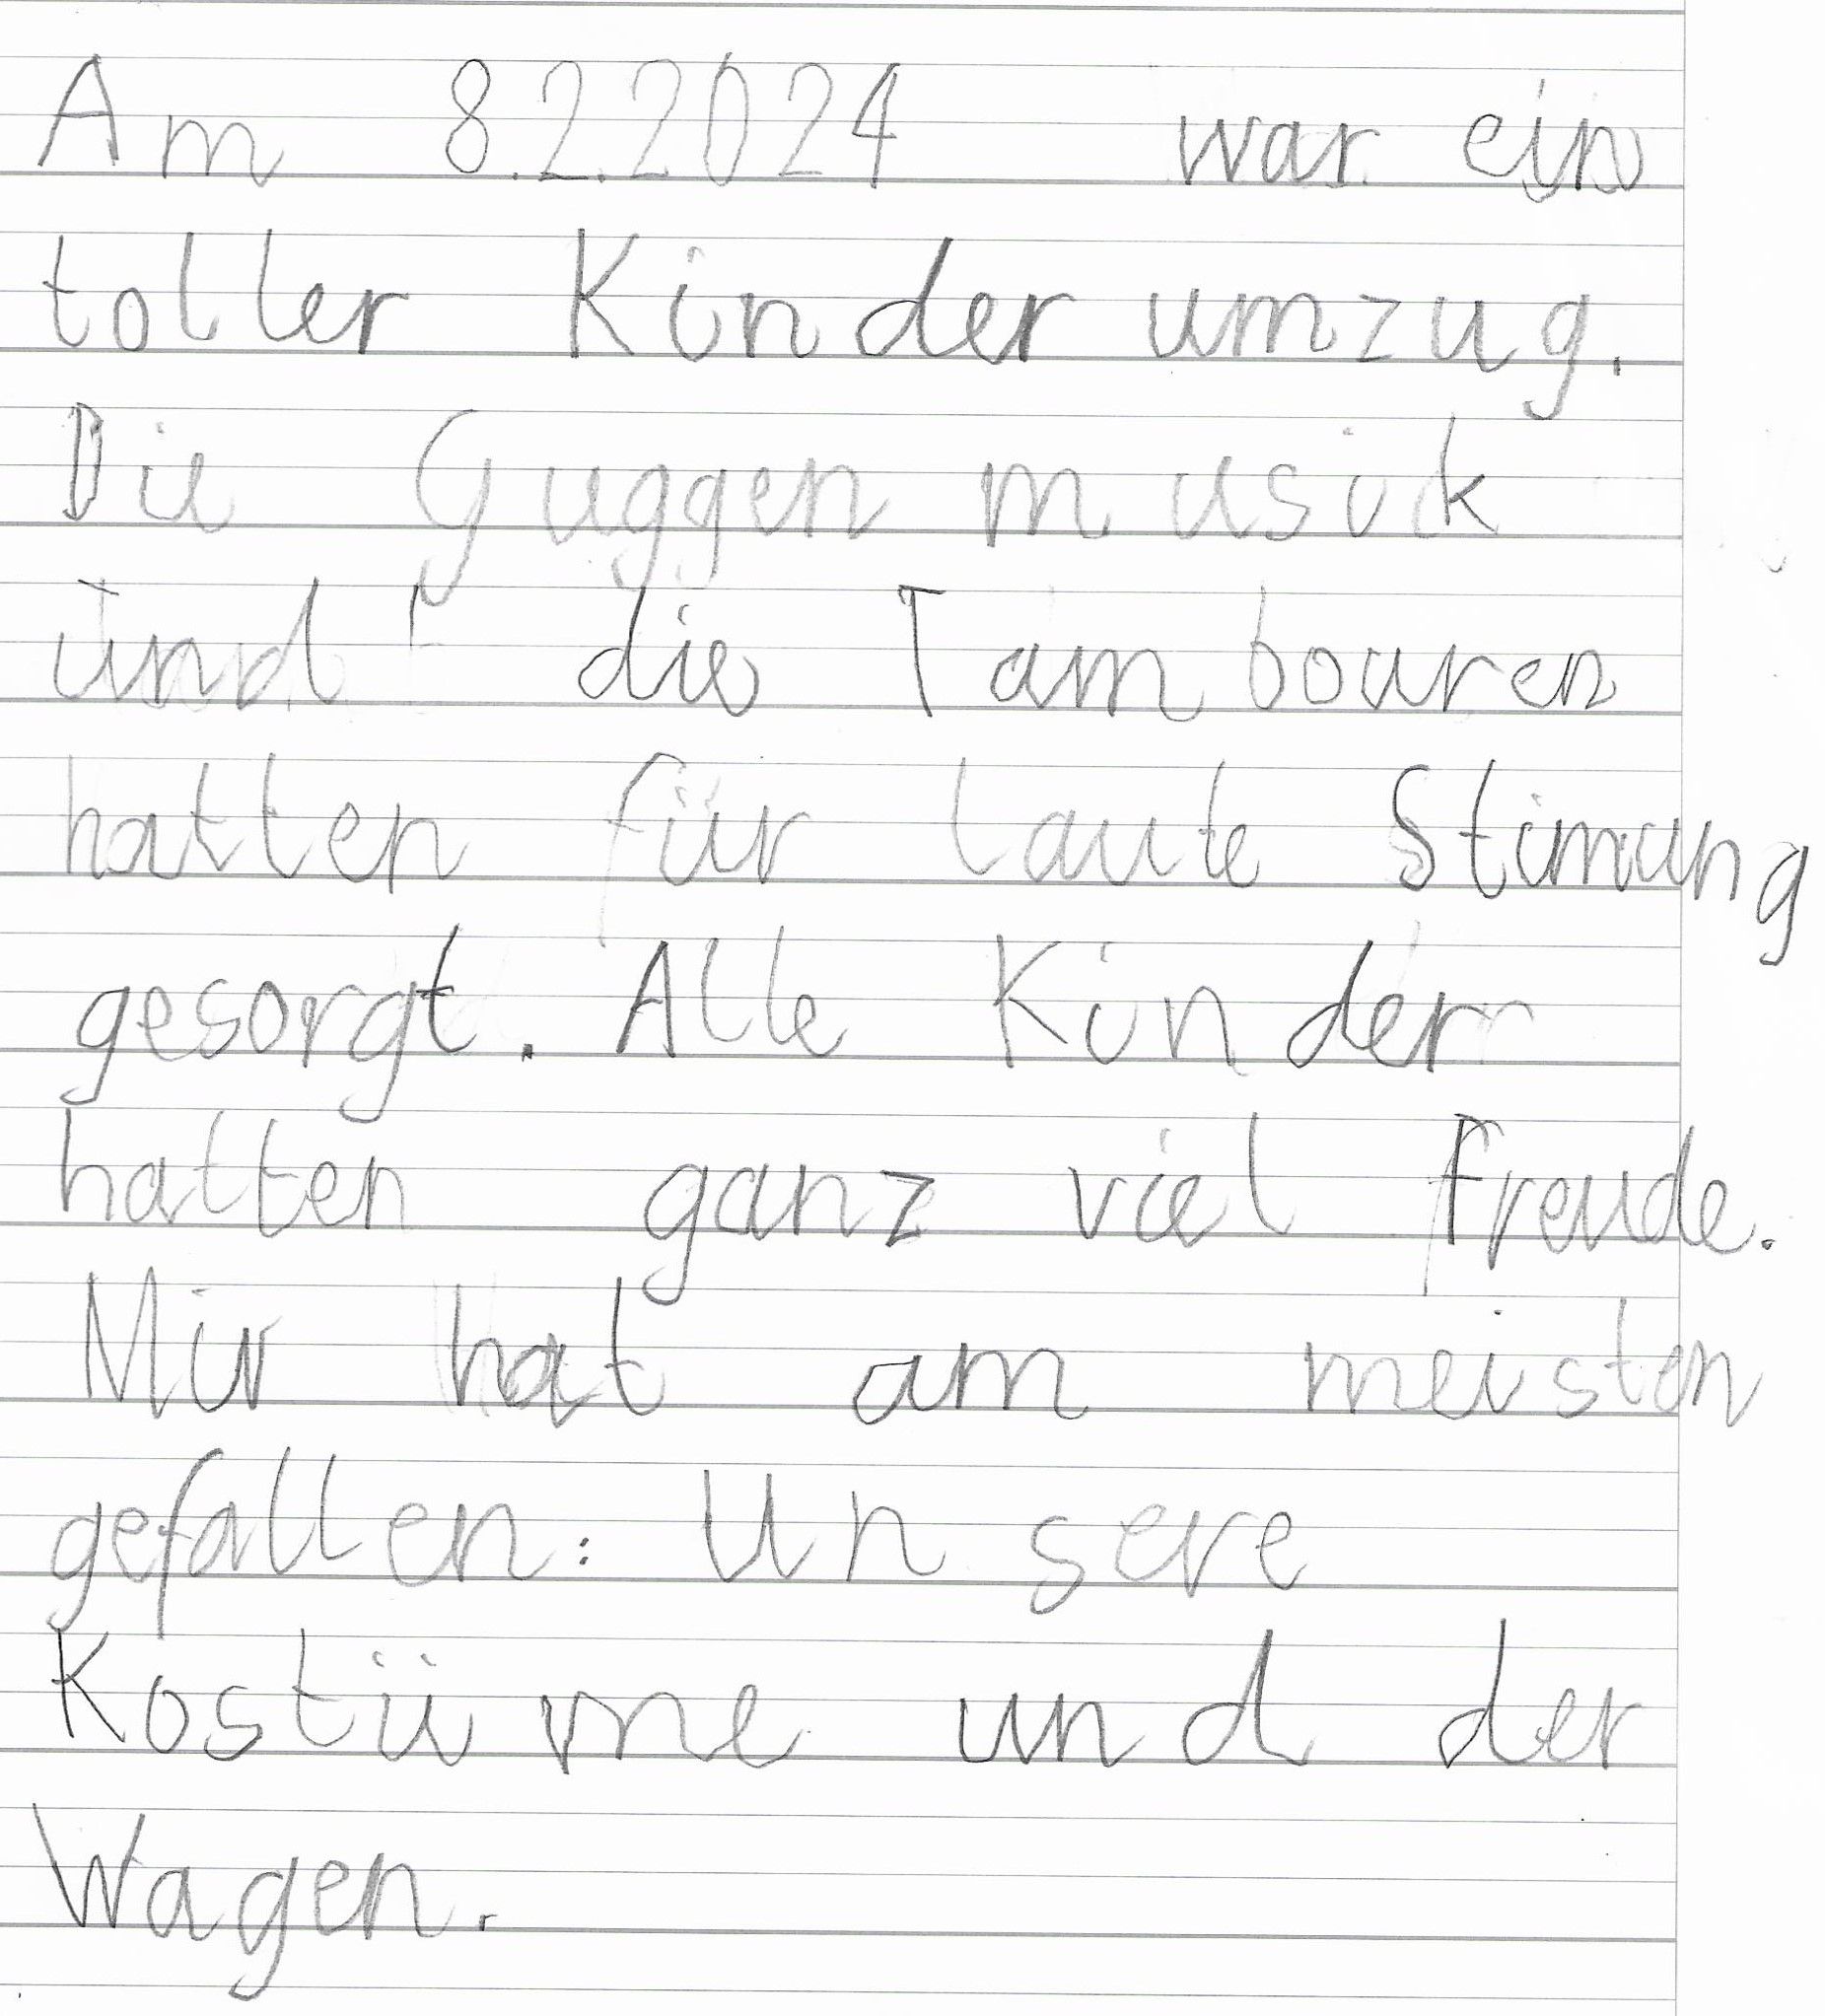 Am 8.2.2024 war ein
toller Kinderumzug.
Die Guggenmusik
und die Tambouren
hatten für laute Stimung
gesorgt. Alle Kinder
hatten ganz viel freude.
Mir hat am meisten
gefallen: Unsere
Kostüme und der
Wagen.